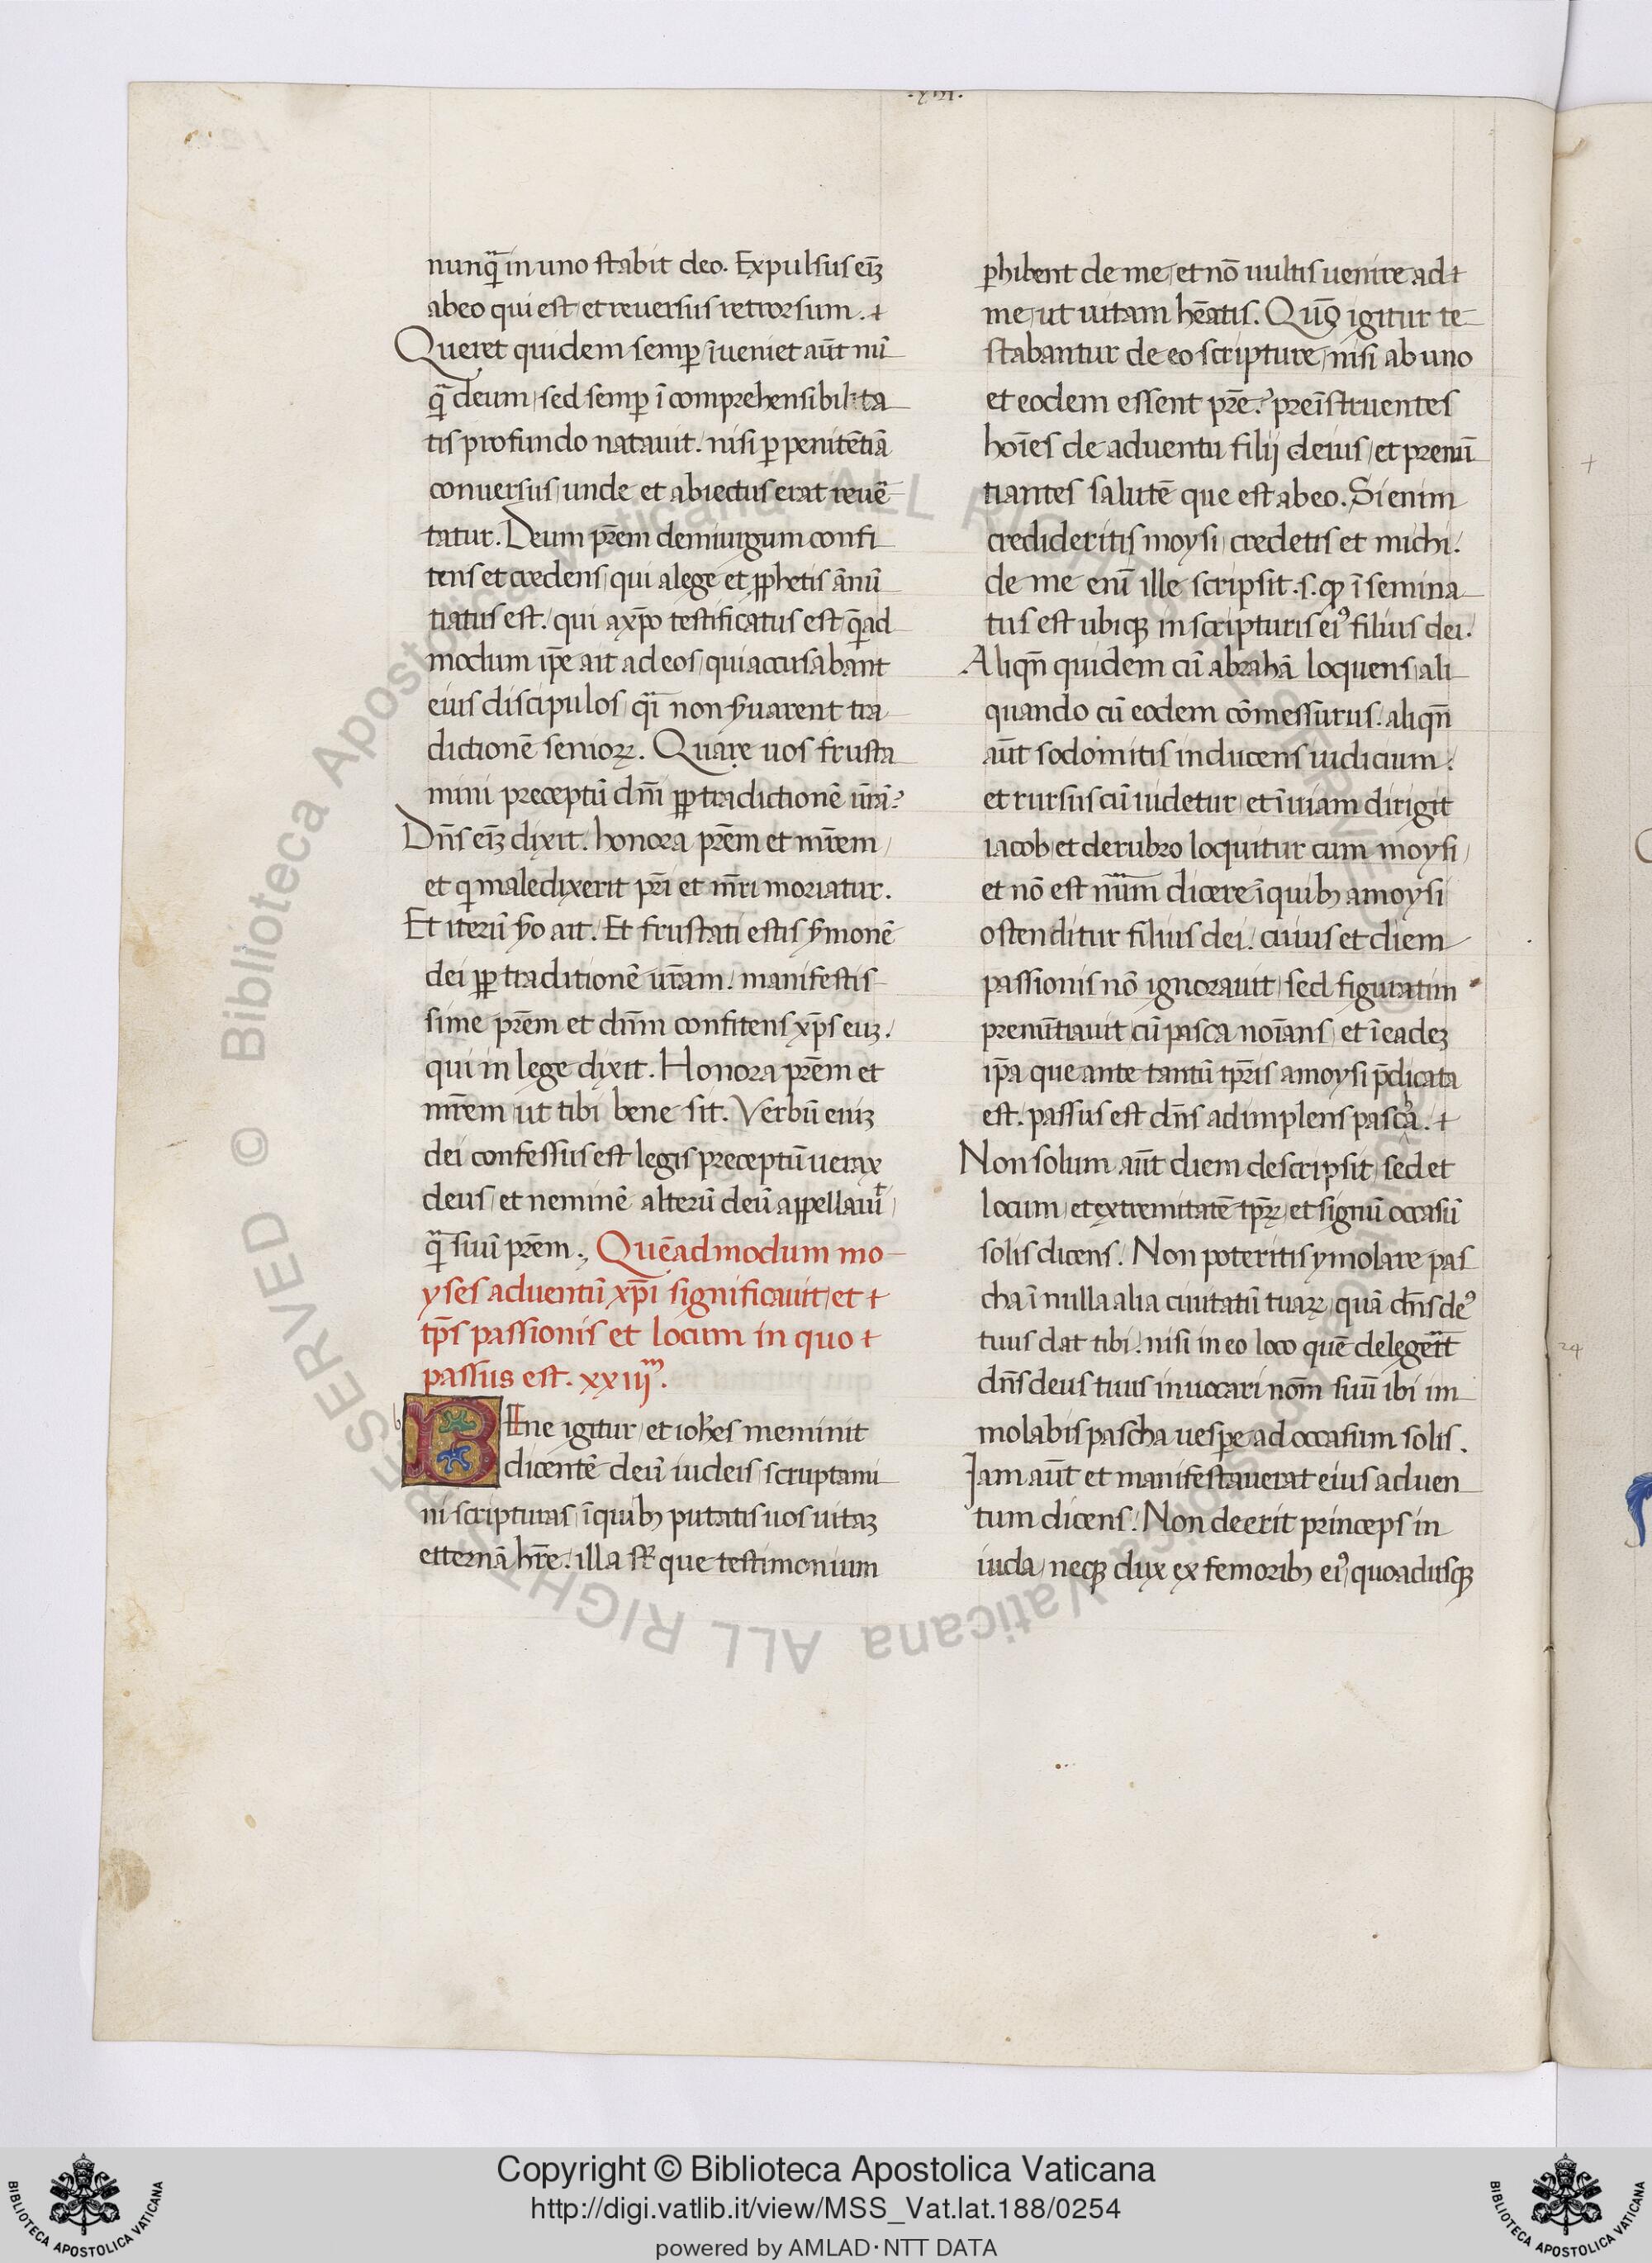 .xiii.
nunq̃ in uno stabit deo. Expulsus eīȝ
ab eo qui est, et reuersus retrorsum.
Queret quidem semꝑ, īueniet aūt nū
q̃ deum, sed semꝑ ī comprehensibilita
tis profundo natauit. nisi ꝑ penitētiā
conuersus, unde et abiectus erat reuē
tatur. Deum pr̄em demiurgum confi
tens et credens, qui a lege et ꝓphetis ānū
tiatus est. qui a xp̄o testificatus est q̄ad
modum ip̄e ait ad eos, qui accusabant
eius discipulos, q̃i non ẜuarent tra
dictionē senioꝝ. Quare uos frusta
mini preceptū dn̄i ꝓp tradictionē ur̄ā?
Dn̄s eīȝ dixit. honora pr̄em et mr̄em,
et q maledixerit pr̄i et mr̄i moriatur.
Et iterū ẜo ait. Et frustati estis ẜmonē
dei ꝓp traditionē ur̄am. manifestis
sime pr̄em et dn̄m confitens xp̄s euȝ.
qui in lege dixit. Honora pr̄em et
mr̄em ut tibi bene sit. Verbū eniȝ
dei confessus est legis preceptū uerax
deus, et neminē alterū deū appellauit,
q̃ suū pr̄em. Quēadmodum mo
yses aduentū xp̄i significauit, et
tp̄s passionis et locum in quo
passus est. xxiiiᵐ.
b
Bene igitur, et ioh̄es meminit
dicentē deū iudeis, scruptami
ni scripturas, ī quibꝫ putatis uos uitaȝ
etternā hr̄e. illa st̄ que testimonium
ꝑhibent de me, et nō uultis uenire ad
me, ut uitam hēatis. Quō igitur te
stabantur de eo scripture, nisi ab uno
et eodem essent pr̄e. preīstruentes
hoīes de aduentu filij deius, et prenū
tiantes salutē que est ab eo. Si enim
credideritis moysi, credetis et michi.
de me enī ille scripsit .s. qꝫ ī semina
tus est ubiqꝫ in scripturis eiꝰ filius dei.
Aliqn̄ quidem cū abrahā loquens, ali
quando cū eodem cōmessurus. aliqn̄
aūt sodomitis inducens iudicium.
et rursus cū uidetur, et ī uiam dirigit
iacob, et de rubro loquitur cum moysi,
et nō est num̄ dicere ī quibꝫ a moysi
ostenditur filius dei. cuius et diem
passionis nō ignorauit, sed figuratim
prenūtiauit cū pasca noīans, et ī eadeȝ
ip̄a que ante tantū tp̄ris a moysi p̄dicata
est. passus est dn̄s adimplens pasca.
Non solum aūt diem descripsit, sed et
locum, et extremitatē tp̄rꝝ, et signū occasū
solis dicens. Non poteritis ymolare pas
cha ī nulla alia ciuitatū tuaꝝ, quā dn̄s deꝰ
tuus dat tibi. nisi in eo loco quē delegerit
dn̄s deus tuus inuocari nom̄ suū ibi im
molabis pascha uespe ad occasum solis.
Jam aūt et manifestauerat eius aduen
tum dicens. Non deerit princeps in
iuda, neqꝫ dux ex femoribꝫ eiꝰ, quoadusqꝫ
24
© Biblioteca Apostolica Vaticana ALL RIGHT RESERVED
Copyright © Biblioteca Apostolica Vaticana
http://digi.vatlib.it/view/MSS_Vat.lat.188/0254
powered by AMLAD·NTT DATA
BIBLIOTECA APOSTOLICA VATICANA
BIBLIOTECA APOSTOLICA VATICANA